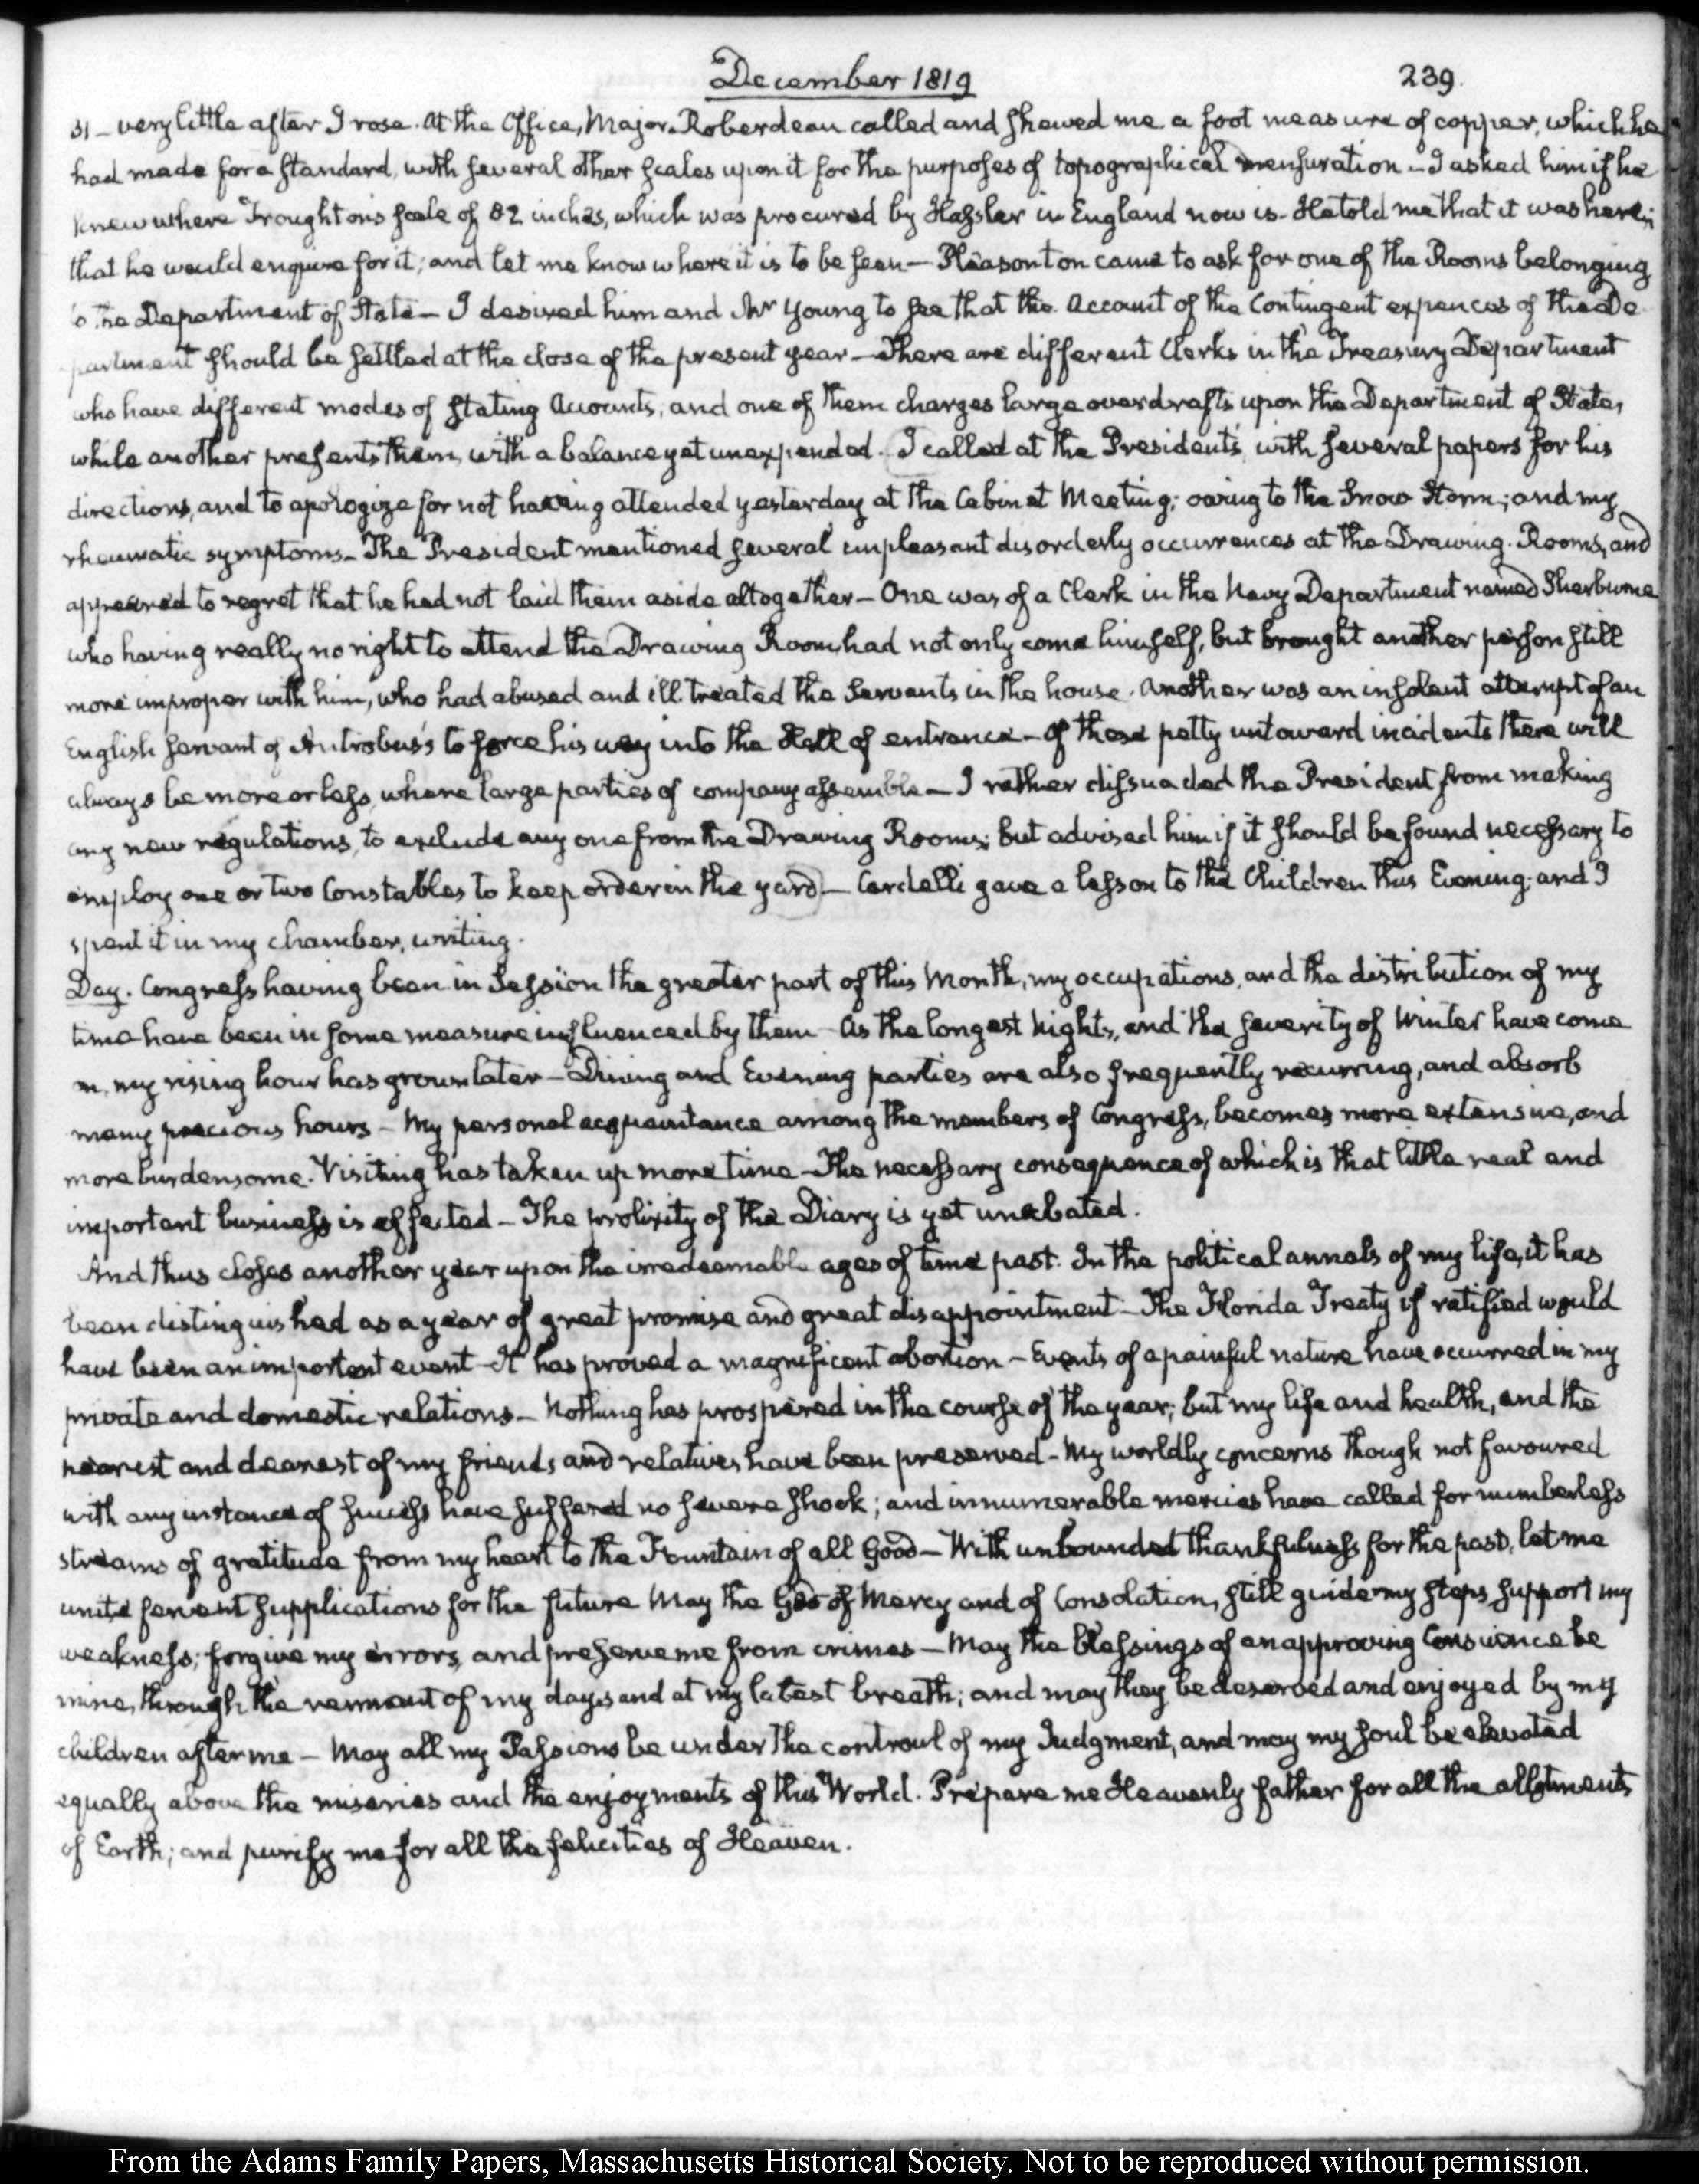 December 1819
239.
31 – very little after I rose. At the Office, Major Roberdeau called and shewed me a foot measure of copper, which he
had made for a standard, with several other scales upon it for the purposes of topographical mensuration – I asked him if he
knew where Troughton's scale of 82 inches, which was procured by Hassler in England now is – He told me that it was here;
that he would enquire for it; and let me know where it is to be seen – Pleasonton came to ask for one of the Rooms belonging
to the Department of State – I desired him and Mr Young to see that the Account of the Contingent expences of the De
partment should be settled at the close of the present year – There are different Clerks in the Treasury Department
who have different modes of stating Accounts, and one of them charges large overdrafts upon the Department of State,
while another presents them with a balance yet unexpended. I called at the President's with several papers for his
directions, and to apologize for not having attended yesterday at the Cabinet Meeting; owing to the Snow Storm; and my
rheumatic symptoms – The President mentioned several unpleasant disorderly occurrences at the Drawing Rooms, and
appeared to regret that he had not laid them aside altogether – One was of a Clerk in the Navy Department named Sherburne
who having really no right to attend the Drawing Room, had not only come himself, but brought another person still
more improper with him, who had abused and ill treated the Servants in the house. Another was an insolent attempt of an
English servant of Antrobus's to force his way into the Hall of entrance – Of these petty untoward incidents there will
always be more or less, where large parties of company assemble – I rather dissuaded the President from making
any new regulations, to exclude any one from the Drawing Rooms; but advised him if it should be found necessary to
employ one or two Constables to keep order in the yard – Cardelli gave a lesson to the Children this Evening; and I
spent it in my chamber, writing.
Day. Congress having been in Session the greater part of this Month, my occupations, and the distribution of my
time have been in some measure influenced by them – As the longest Nights, and the severity of Winter have come
on, my rising hour has grown later – Dining and Evening parties are also frequently recurring, and absorb
many precious hours – My personal acquaintance among the members of Congress, becomes more extensive, and
more burdensome. Visiting has taken up more time – The necessary consequence of which is that little real and
important business is effected – The prolixity of the Diary is yet unabated.
And thus closes another year upon the irredeemable ages of time past. In the political annals of my life, it has
been distinguished as a year of great promise and great disappointment – The Florida Treaty if ratified would
have been an important event – It has proved a magnificent abortion – Events of a painful nature have occurred in my
private and domestic relations – Nothing has prospered in the course of the year; but my life and health, and the
nearest and dearest of my friends and relatives have been preserved – My worldly concerns though not favoured
with any instance of success have suffered no severe shock; and innumerable mercies have called for numberless
streams of gratitude from my heart to the Fountain of all Good – With unbounded thankfulness for the past, let me
unite fervent supplications for the future May the God of Mercy and of Consolation, still guide my steps, support my
weakness; forgive my errors, and preserve me from crimes – May the blessings of an approving Conscience be
mine, through the remnant of my days and at my latest breath; and may they be deserved and enjoyed by my
children after me – May all my Passions be under the controul of my Judgment, and may my soul be elevated
equally above the miseries and the enjoyments of this World. Prepare me Heavenly father for all the allotments
of Earth; and purify me for all the felicities of Heaven.
From the Adams Family Papers, Massachusetts Historical Society. Not to be reproduced without permission.